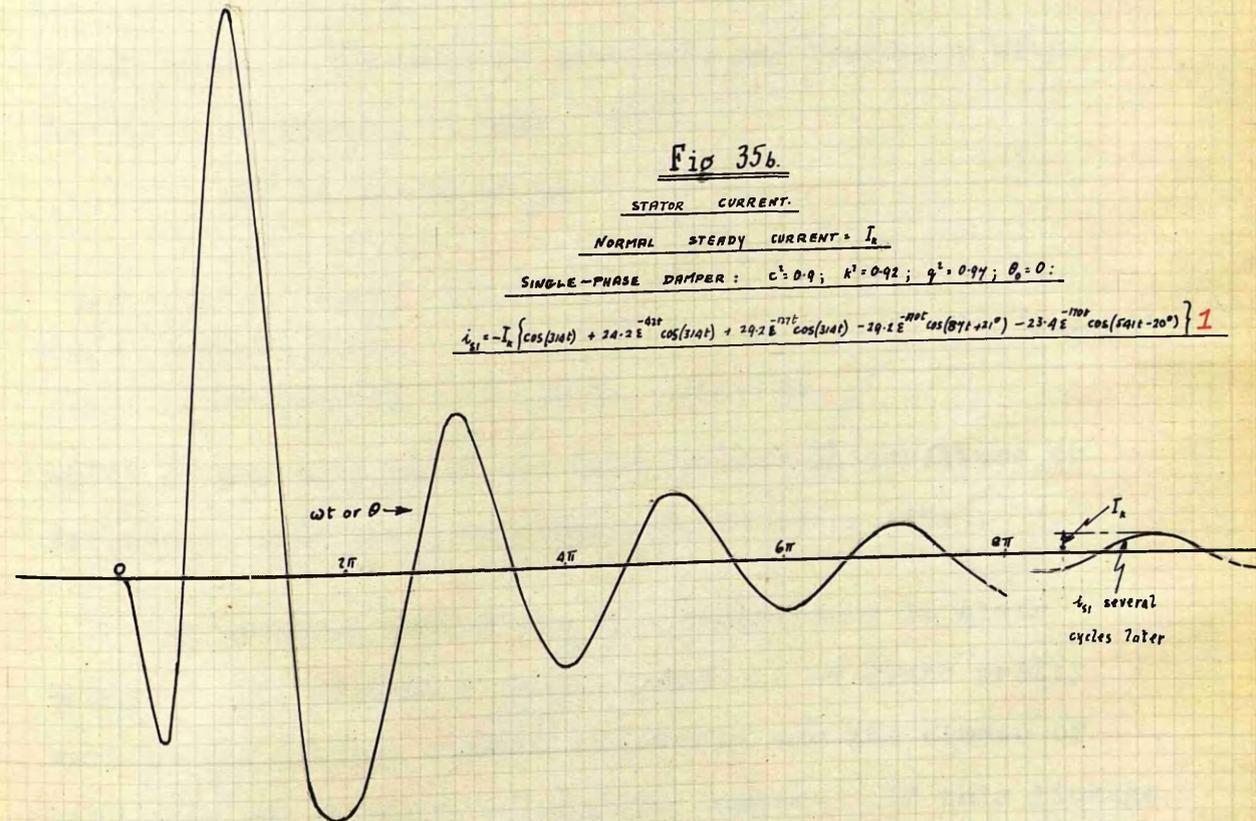 Fig 35b.
STATOR CURRENT.
NORMAL STEADY CURRENT = Iₖ
SINGLE-PHASE DAMPER : c² = 0.9 ; k² = 0.92 ; q² = 0.94 ; θ₀ = 0 :
i_S1 = -Iₖ {cos(314t) + 24.2ε^-42t cos(314t) + 29.2ε cos(314t) - 29.2ε cos(87t+21°) - 23.4ε^-170t cos(541t-20°)} 1
ωt or θ→
O
2π
4π
6π
8π
Iₖ
i_S1 several
cycles later